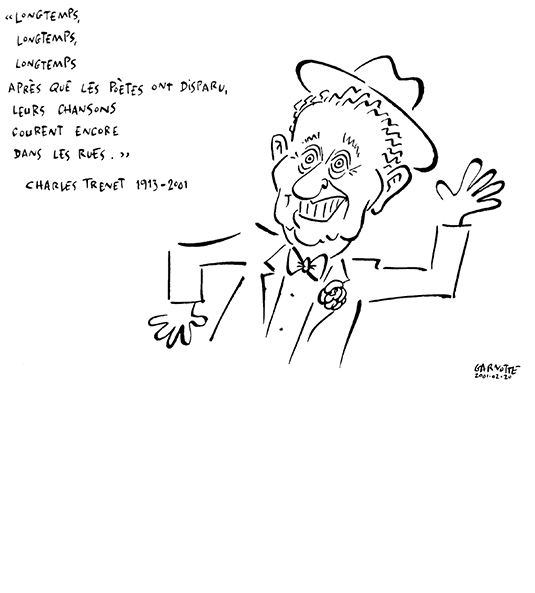 «LONGTEMPS,
LONGTEMPS,
LONGTEMPS
APRÈS QUE LES POÈTES ONT DISPARU,
LEURS CHANSONS
COURENT ENCORE
DANS LES RUES.»
CHARLES TRENET 1913-2001
GARNOTTE
2001-02-20